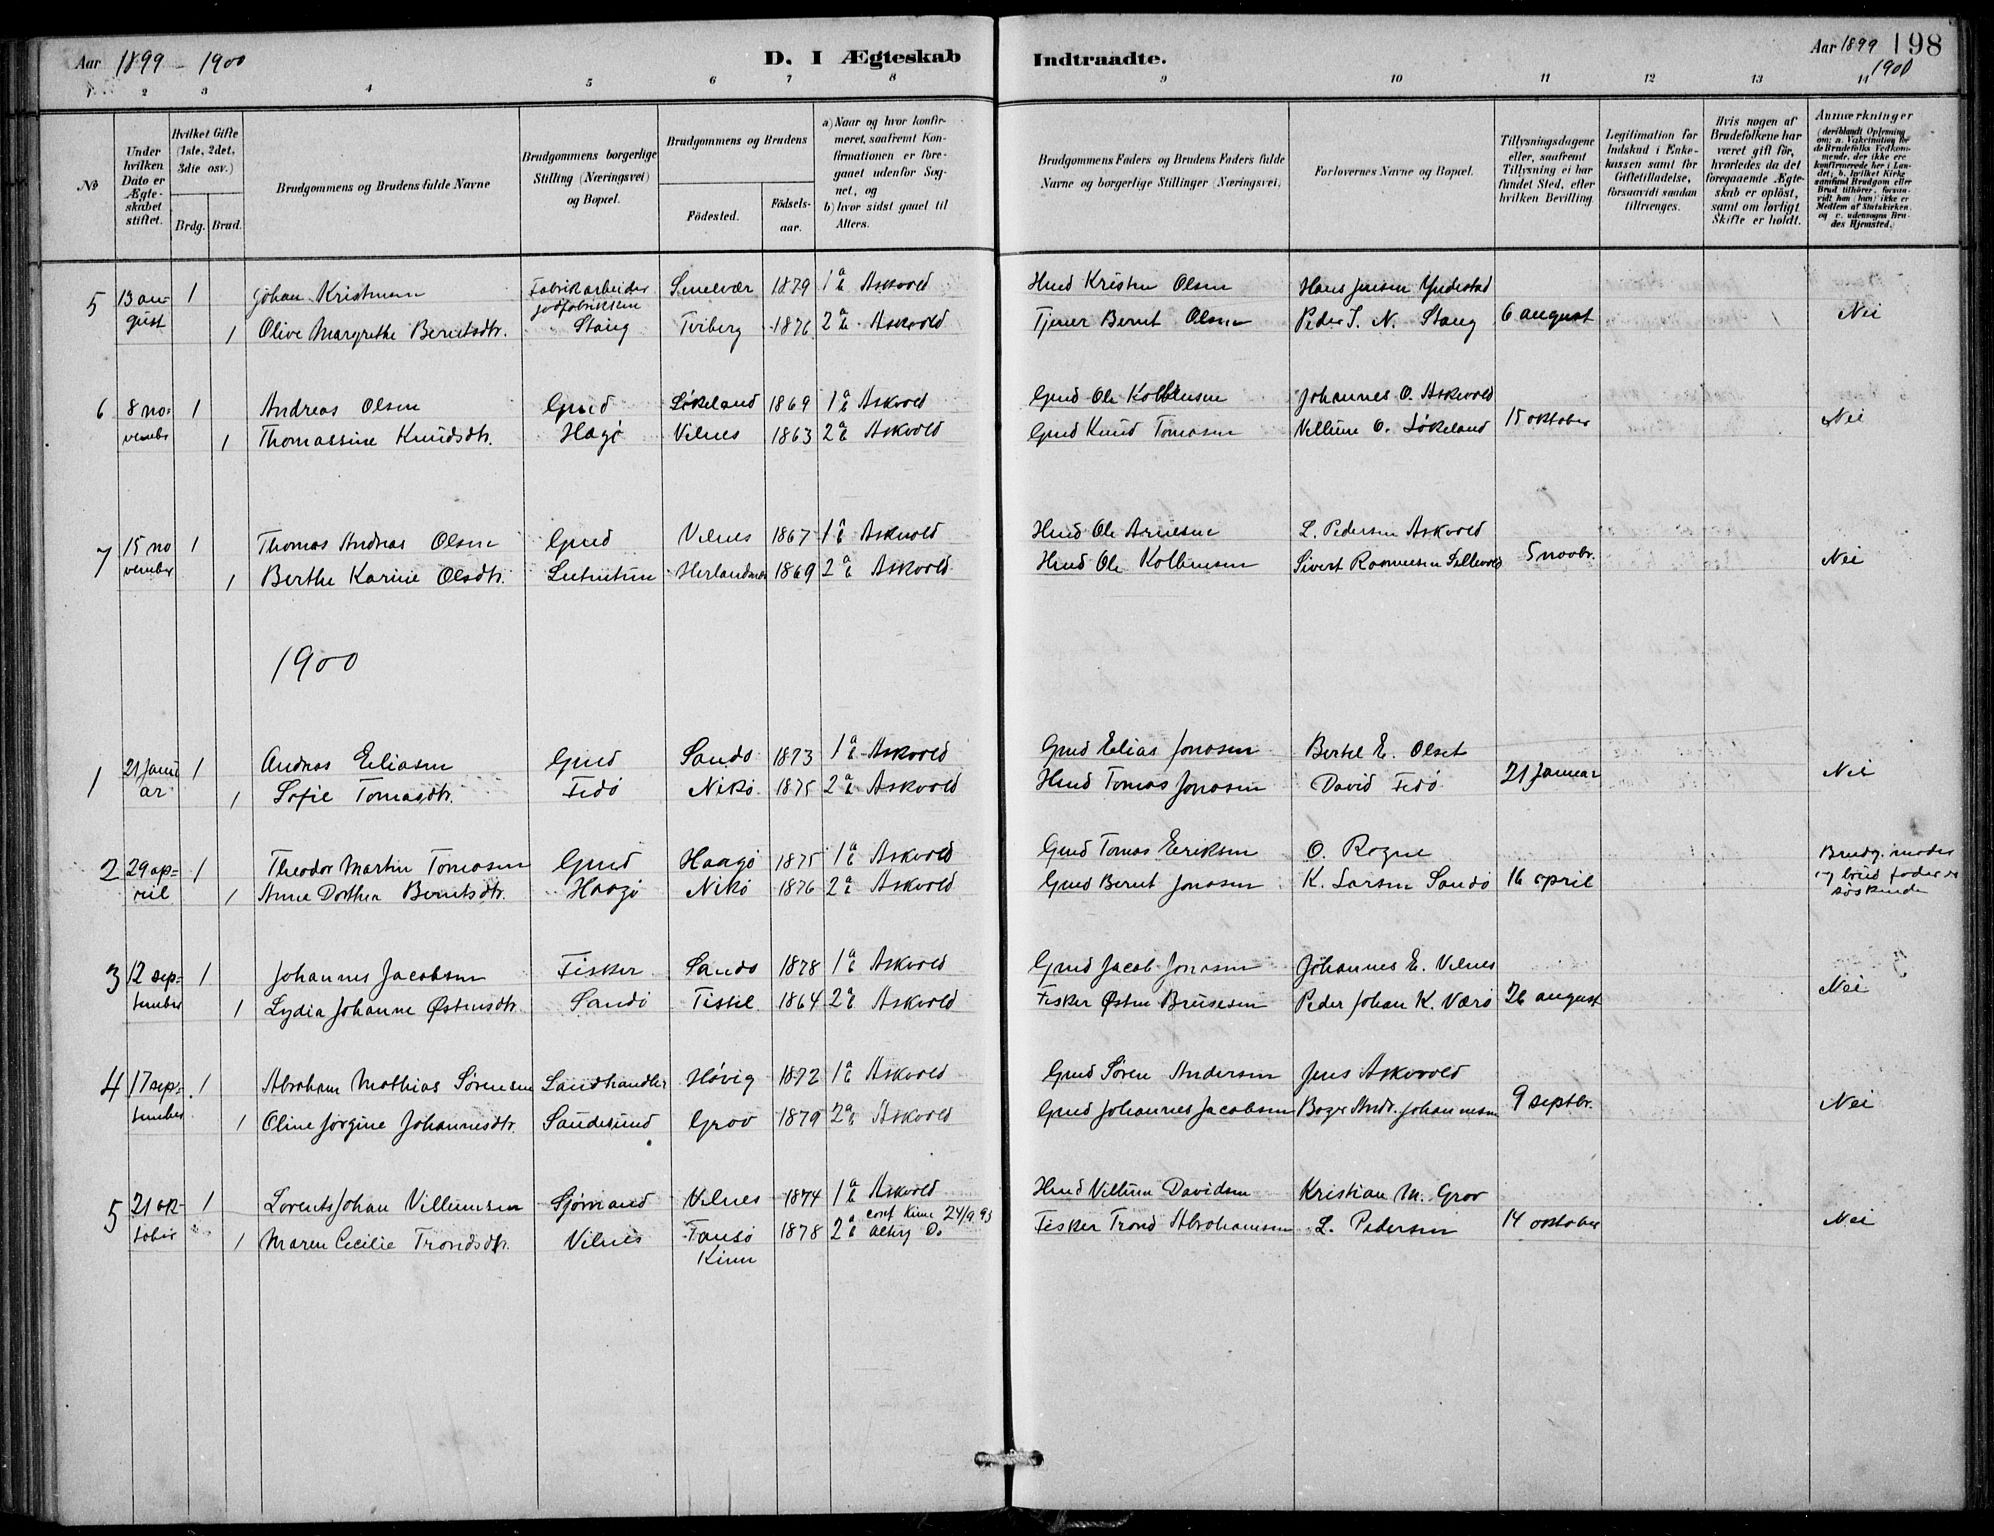 Aar 1899 - 1900 D. I Ægteskab Indtraadte. Aar 1899 198
1900
1 2 3 4 5 6 7 8 9 10 11 12 13 14
No
Under hvilken Dato er Ægteskabet stiftet.
Hvilket Gifte (1ste, 2det, 3die osv.)
Brdg. Brud.
Brudgommens og Brudens fulde Navne
Brudgommens borgerlige Stilling (Næringsvei) og Bopæl.
Brudgommens og Brudens
Fødested. Fødselsaar.
a) Naar og hvor konfirmeret, saafremt Konfirmationen er foregaaet udenfor Sognet, og
b) hvor sidst gaaet til Alters.
Brudgommens Faders og Brudens Faders fulde Navne og borgerlige Stillinger (Næringsvei)
Forlovernes Navne og Bopæl.
Tillysningsdagene eller, saafremt Tillysning ei har fundet Sted, efter hvilken Bevilling.
Legitimation for Indskud i Enkekassen samt for Giftetilladelse, forsaavidt saadan tiltrænges.
Hvis nogen af Brudefolkene har været gift før, hvorledes da det foregaaende Ægteskab er opløst, samt om lovligt Skifte er holdt.
Anmærkninger (deriblandt Oplysning om: a. Vakcination for de Brudefolks Vedkommende, der ikke ere konfirmerede her i Landet; b. hvilket Kirkesamfund Brudgom eller Brud tilhører, forsaavidt han (hun) ikke er Medlem af Statskirken, og c. udensogns Brudes Hjemsted.)
5 13 au- 1 Johan Kristensen Fabrikarbeider Smelvær 1879 1 a b Askvold Hmd Kristen Olsen Hans Jensen Yndestad
gust 1 Olive Margrethe Berntsdtr. jodfabriken Stang Tviberg 1876 2 a b Askvold Tjener Bernt Olsen Peder S. N. Stang 6 august Nei
6 8 no- 1 Andreas Olsen Gmd Løkeland 1869 1 a b Askvold Gmd Ole Kolbensen Johannes O. Askvold
vembr 1 Thomassine Knudsdtr. Hagø Vilnes 1863 2 a b Askvold Gmd Knud Tomasen Villum O. Løkeland 15 oktober Nei
7 15 no 1 Thomas Andreas Olsen Gmd Vilnes 1867 1 a b Askvold Hmd Ole Arnesen L. Pedersen Askvold
vember 1 Berthe Karine Olsdtr. Herlandnes 1869 2 a b Askvold Hmd Ole Kolbensen Sivert Rasmussen Sellevold 5 novbr. Nei
1900
1 21 janu 1 Andreas Eliasen Gmd Sandø 1873 1 a b Askvold Gmd Elias Jonasen Bertel E. Olset
ar 1 Sofie Tomasdtr. Fedø Nikø 1875 2 a b Askvold Hmd Tomas Jonasen David Fedø 21 Januar Nei
2 29 ap- 1 Theodor Martin Tomasen Gmd Haagø 1875 1 a b Askvold Gmd Tomas Eriksen O. Rogne Brudg. moder
ril 1 Anne Dorthea Berntsdtr. Haagø Nikø 1876 2 a b Askvold Gmd Bernt Jonasen K. Larsen Sandø 16 april og brud fader er
søskende
3 12 sep- 1 Johannes Jacobsen Fisker Sandø 1878 1 a b Askvold Gmd Jacob Jonasen Johannes E. Vilnes
tember 1 Lydia Johanne Østensdtr. Sandø Tistel 1864 2 a b Askvold Fisker Østen Brusesen Peder Johan K. Værø 26 august Nei
4 17 sep- 1 Abraham Mathias Sørensen Landhandler Høvig 1872 1 a b Askvold Gmd Søren Andersen Jens Askvold
tember 1 Oline Jørgine Johannesdtr. Sandesund Grov 1879 2 a b Askvold Gmd Johannes Jacobsen Andr. Johannesen 9 septbr. Nei
5 21 ok- 1 Lorents Johan Villumsen Sjømand Vilnes 1874 1 a b Askvold Hmd Villum Davidsen Kristian M. Grov
tober 1 Maren Cecilie Trondsdtr. Vilnes Fansø 1878 2 a b conf Kinn 24/9 93 Fisker Trond Abrahamsen L. Pedersen 14 oktober Nei
Kinn